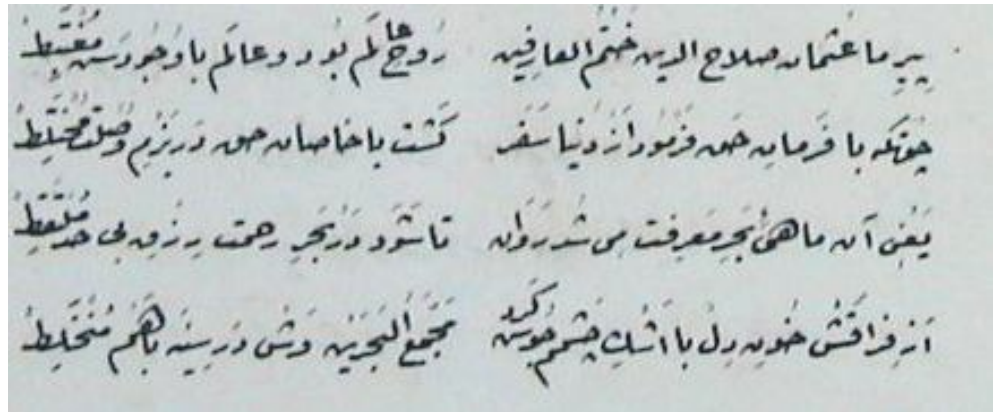 پیرِ ما عثمان صلاح الدین خَتمُ العارِفین رُوحِ عالَم بُود و عالَم با وُجُودَش مُغتَبِط
چونکه با فَرمانِ حق فَرمُود اَز دُنیا سَفَر گشت با خاصانِ حق دَر بَزمِ وَصلَت مُختَلِط
یَعنِی آن ماهیِ بَحرِ مَعرِفت مِی شُد رَوان تا شَوَد دَر بَحرِ رحمت رِزقِ بی حَد مُلتَقِط
اَز فِراقَش خُونِ دِل با اَشکِ چَشمم جُوش کَرد مَجمَعُ البَحرَین وَش دَر سِینَه باهَم مُختَلِط